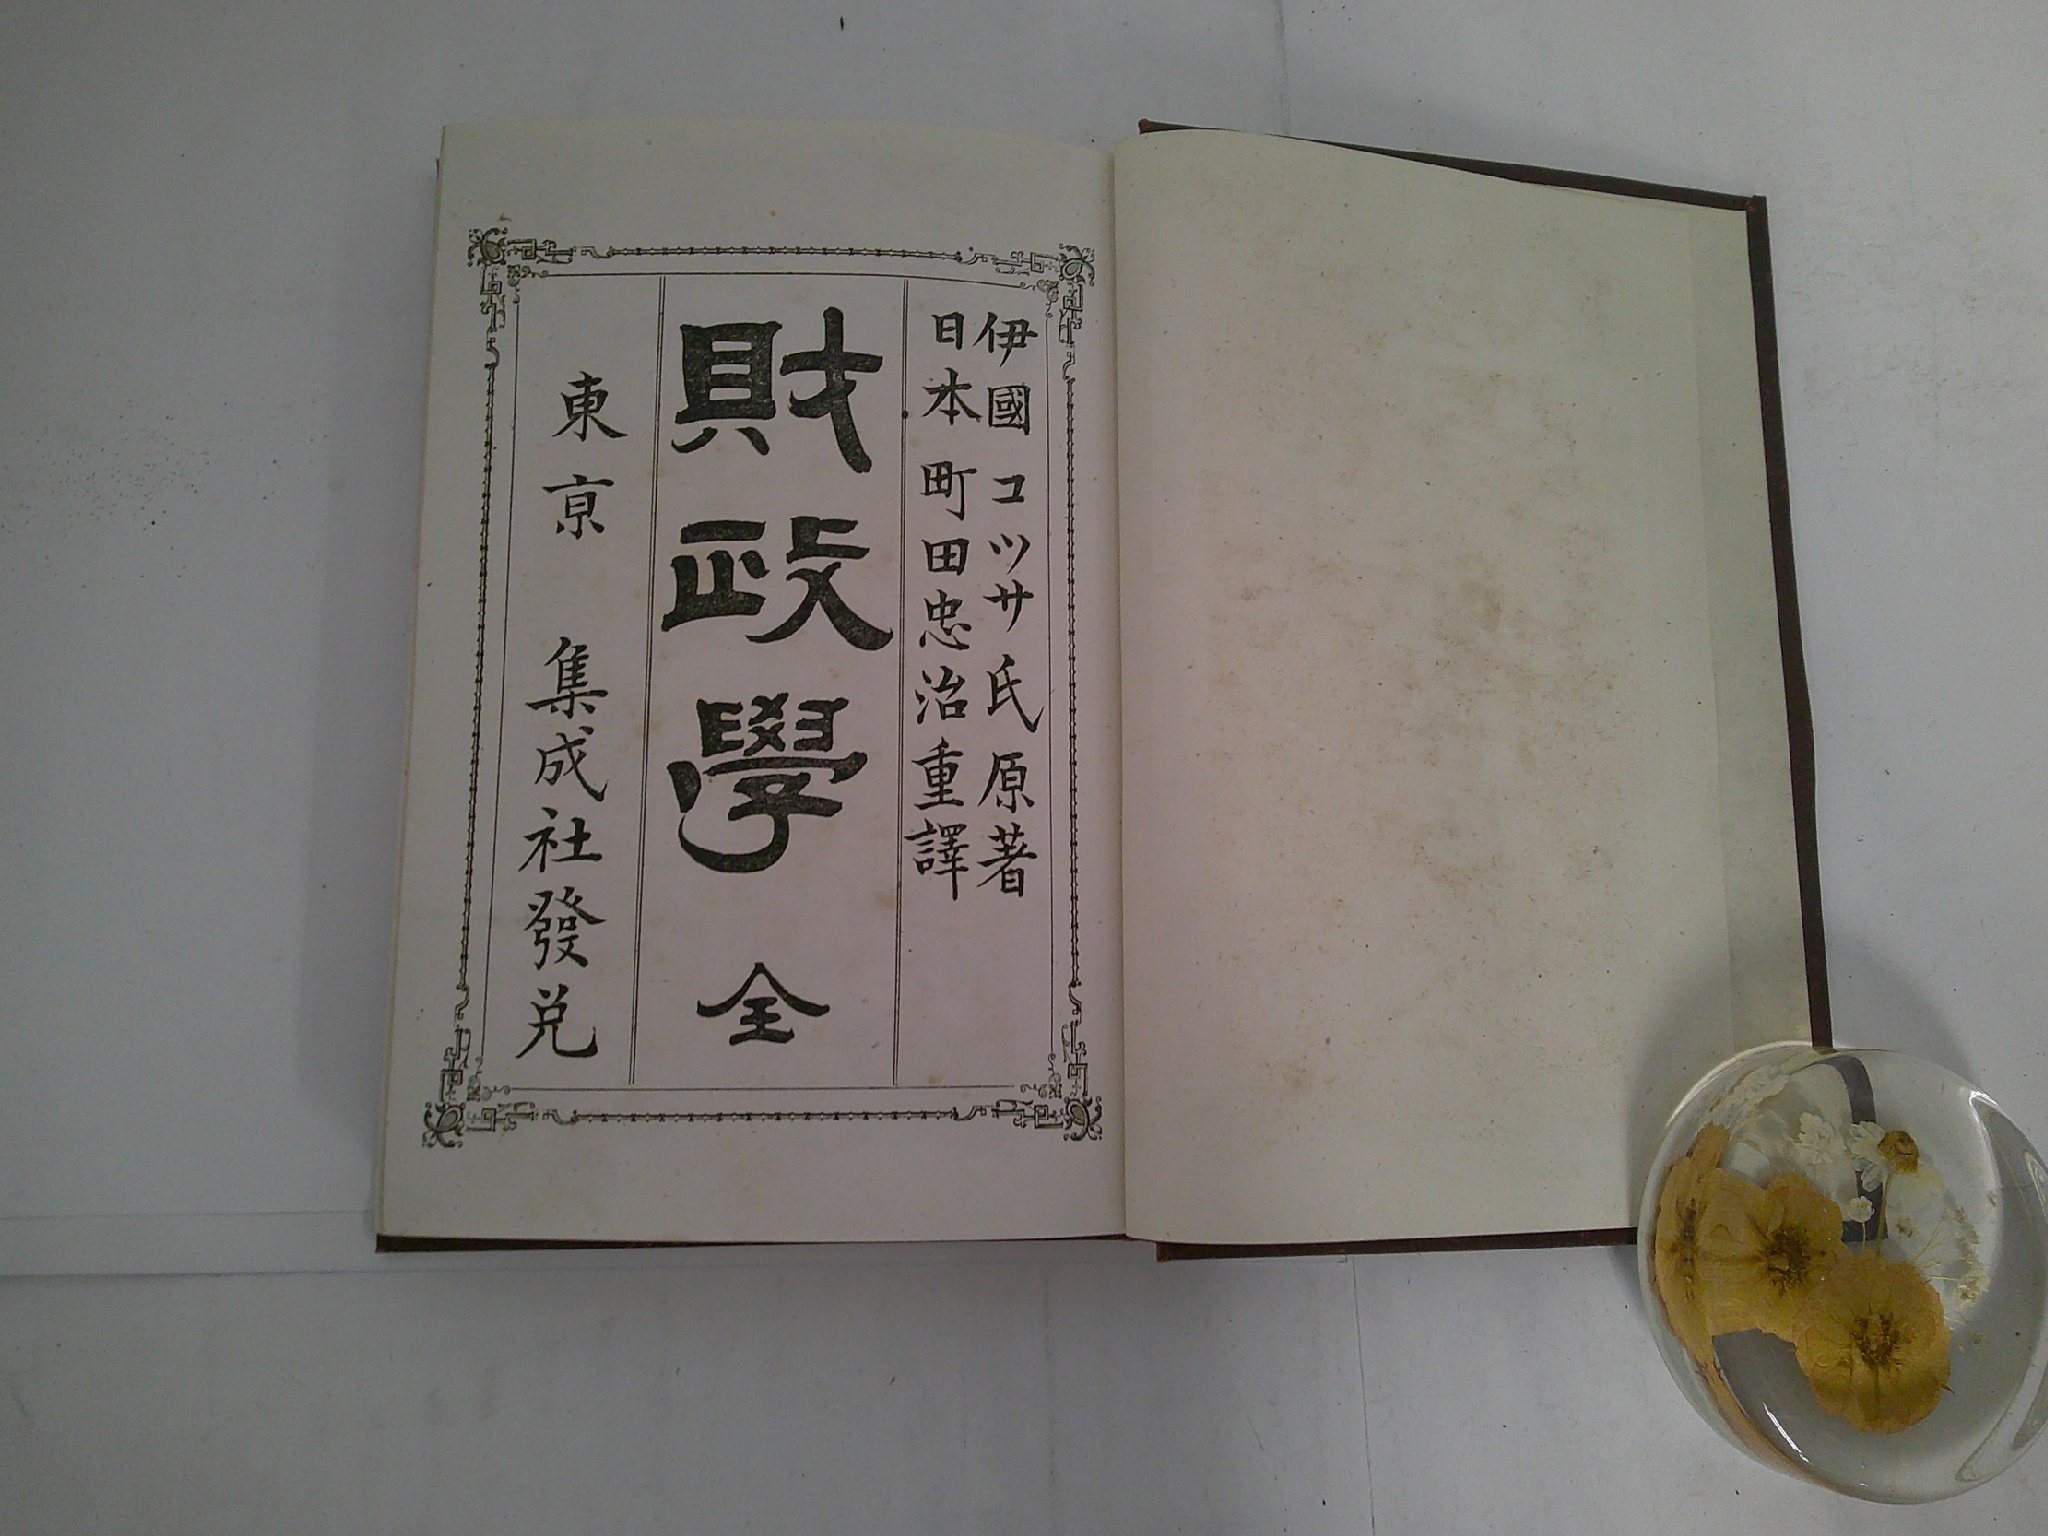 伊國 コツサ氏原著
日本 町田忠治重譯
財政學 全
東京 集成社發兌